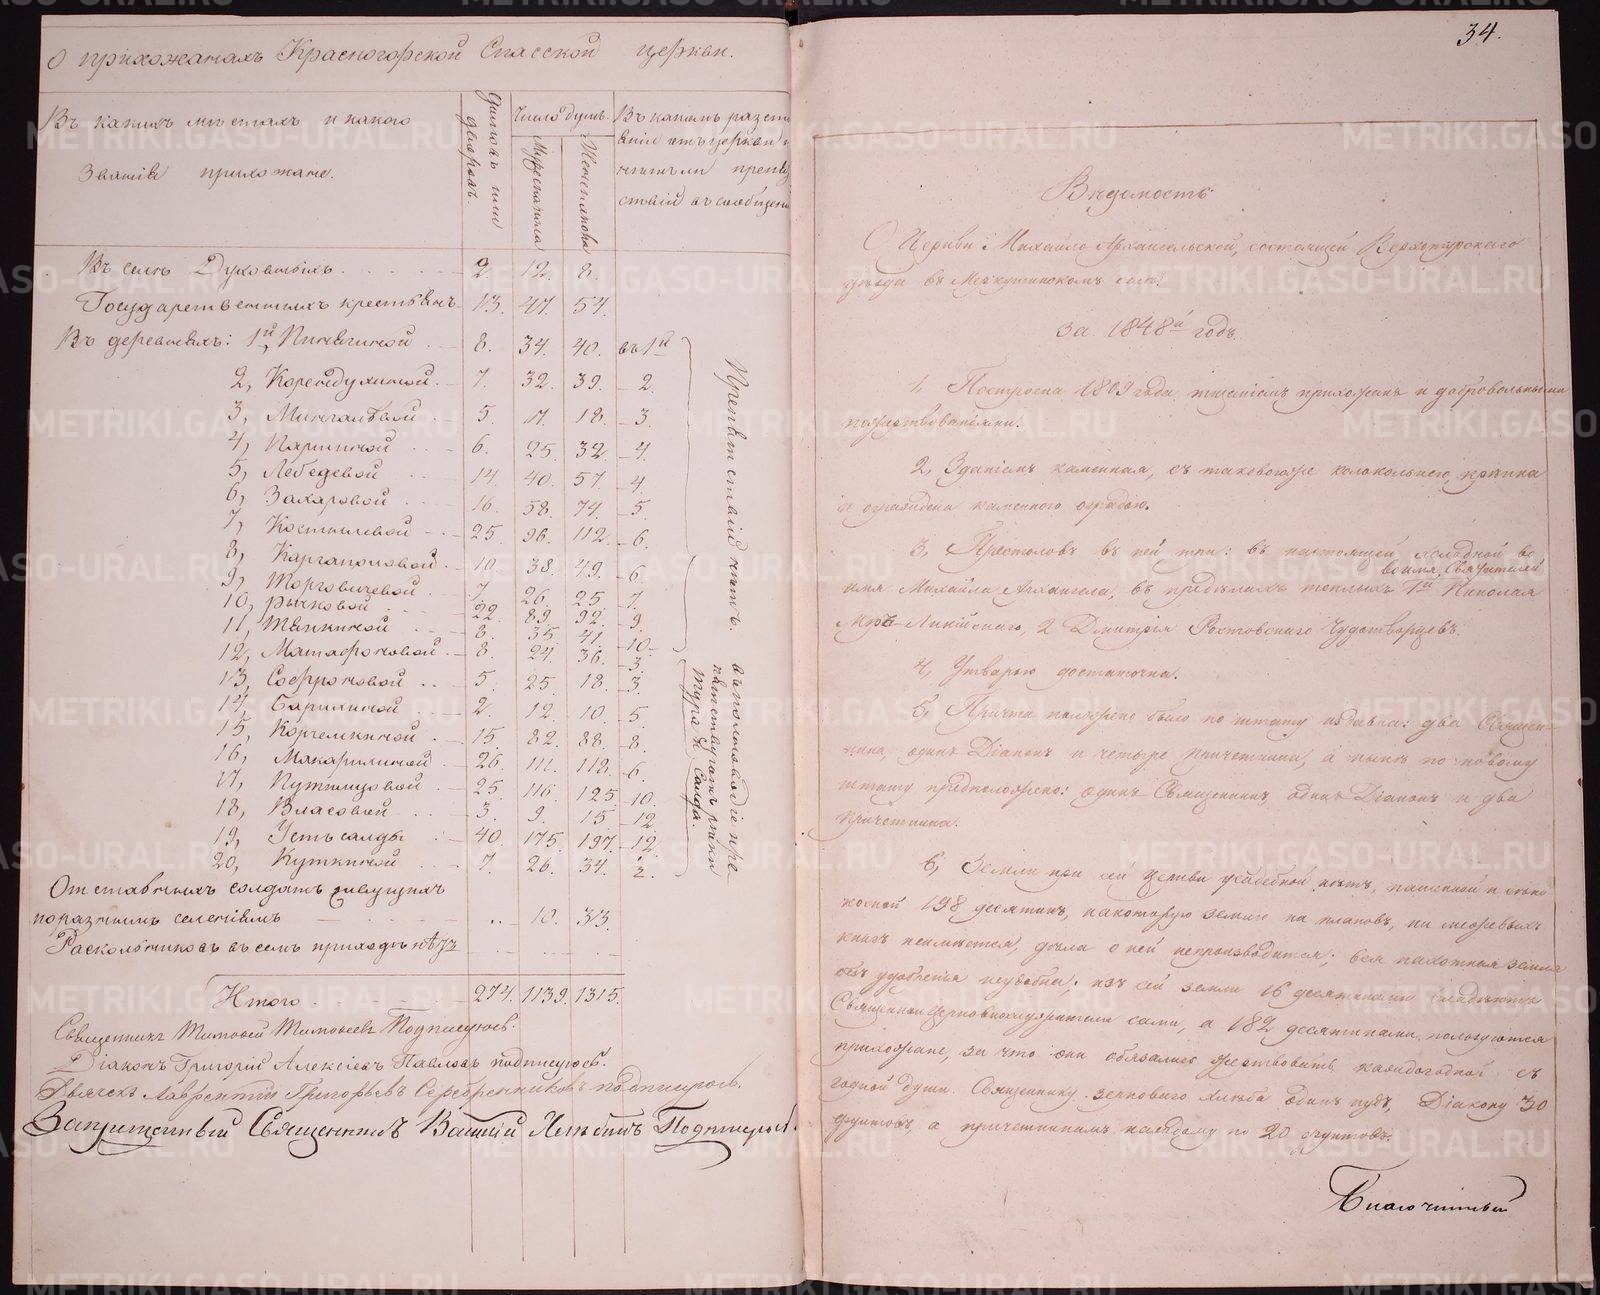 О прихожанахъ Красногорской Спасской церкви.
Въ какихъ мѣстахъ и какого званія прихожане.
Число дворовъ.
Число душъ.
Мужеска пола
Женска пола
Въ какомъ разстоя
яніи отъ церкви и
нѣтъ ли препят
ствій въ сообщені
Въ селѣ Духовныхъ 2. 12. 8.
Государственныхъ крестьянъ 13. 47. 54.
Въ деревняхъ: 1й, Пинягиной 8. 34. 40. въ 1й
2, 7. 32. 39. 2.
3, 5. 11. 18. 3.
4, 6. 25. 32. 4.
5, Лебедевой 14. 40. 57. 4.
6, Захаровой 16. 58. 74. 5.
7, Костылевой 25. 96. 112. 6.
8, Каргаполовой 10. 38. 49. 6.
9, Торговичевой 7. 26. 25. 7.
10, Рычковой 22. 89. 92. 9.
11, 8. 35. 41. 10.
12, Матафоновой 8. 24. 36. 3.
13, Софроновой 5. 25. 18. 3.
14, 2. 12. 10. 5.
15, Коргемкиной 15. 82. 88. 8.
16, Макарихиной 26. 111. 112. 6.
17, Путимцовой 25. 116. 125. 10.
18, Власовой 3. 9. 15. 12.
19, Усть салды 40. 175. 197. 12.
20, Путкиной 7. 26. 34. 1/2.
Препятствій нѣтъ.
въ половодіе пре
пятствуютъ рѣки
Тура и Салда.
Отставныхъ солдатъ живущихъ
по разнымъ селеніямъ 10. 313.
Раскольниковъ въ семъ приходѣ нѣтъ
Итого 274. 1139. 1315.
Священникъ Тимофей Подписуюсь.
Діаконъ Григорій Алексіевъ Павловъ подписуюсь.
Дьячекъ Лаврентій Григорьевъ Серебренниковъ подписуюсь.
Священникъ Подписуюсь
34.
Вѣдомость
О Церкви Михайло Архангельской, состоящей Верхотурскаго
уѣзда въ Меркушинскомъ селѣ.
за 1848й годъ.
1, Построена 1809 года, тщаніемъ прихожанъ и добровольными
пожертвованіями.
2, Зданіемъ каменная, съ таковою же колокольнею, крѣпка
и ограждена каменною оградою.
3, Престоловъ въ ней три: въ настоящей холодной во
имя Михайла Архангела, въ придѣлахъ теплыхъ 1й во имя Святителей Николая
Мѵръ-Ликійскаго, 2 Димитрія Ростовскаго Чудотворцевъ.
4, Утварью достаточна.
5, Причта положено было по штату издавна: два Священ-
ника, одинъ Діаконъ и четыре причетника, а нынѣ по новому
штату предположено: одинъ Священникъ, одинъ Діаконъ и два
причетника.
6, Земли при сей церкви усадебной нѣтъ, пашенной и сѣно
косной 198 десятинъ, на которую землю ни плановъ, ни межевыхъ
книгъ неимѣется, дѣла о ней непроизводится; вся пахотная земля
безъ удобренія неудобна; изъ сей земли 16 десятинами владѣютъ
Священноцерковнослужители сами, а 182 десятинами пользуются
прихожане, за что они обязались жертвовать каждогодно съ
годной души Священнику зерноваго хлѣба одинъ пудъ, Діакону 30
фунтовъ, а причетникамъ каждому по 20 фунтовъ.
Благочинный
METRIKI.GASO-URAL.RU